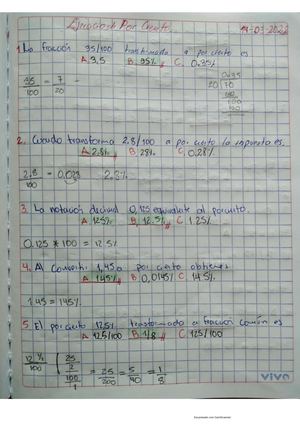 Ejercicios Por Ciento
1. La fracción 35/100 transformado a porciento es
A. 3,5 B. 35% C. 0.35%
35/100 = 7/20
0.35
20 70
100
100
2. Cuando transforma 2,8/100 a por ciento la respuesta es.
A. 2.8% B. 28% C. 0.28%
2,8/100 = 0,028 2.8%
3. La notación decimal 0,125 equivalente al porciento.
A. 125% B. 12.5% C. 1.25%
0.125 * 100 = 12.5%
4. Al convertir 1,45 a por ciento obtienes
A. 145% B. 0,0145% C. 14.5%
1.45 = 145%
5. El porciento 12.5% transformado a fracción común es
A. 12.5/100 B. 1/8 C. 125/100
25/2
100/1
= 25/200 = 5/40 = 1/8
vivo